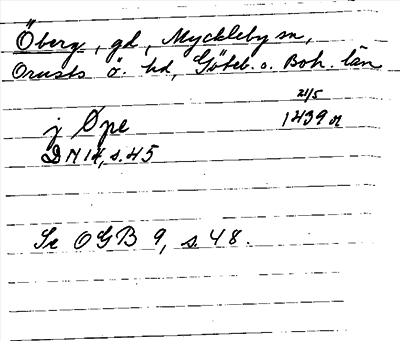 Öberg, gd, Myckleby sn,
Orusts ö. hd, Göteb. o. Boh. län
21/5
j Øpe 1439 or
DN 14, s. 45
Se OGB 9, s 48.